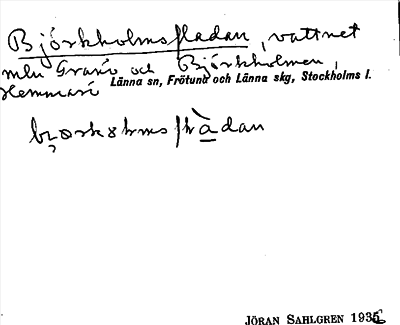 Björkholmsfladan, vattnet
mln Granö och Björkholmen,
Hemmarö Länna sn, Frötuna och Länna skg, Stockholms l.
JÖRAN SAHLGREN 1935